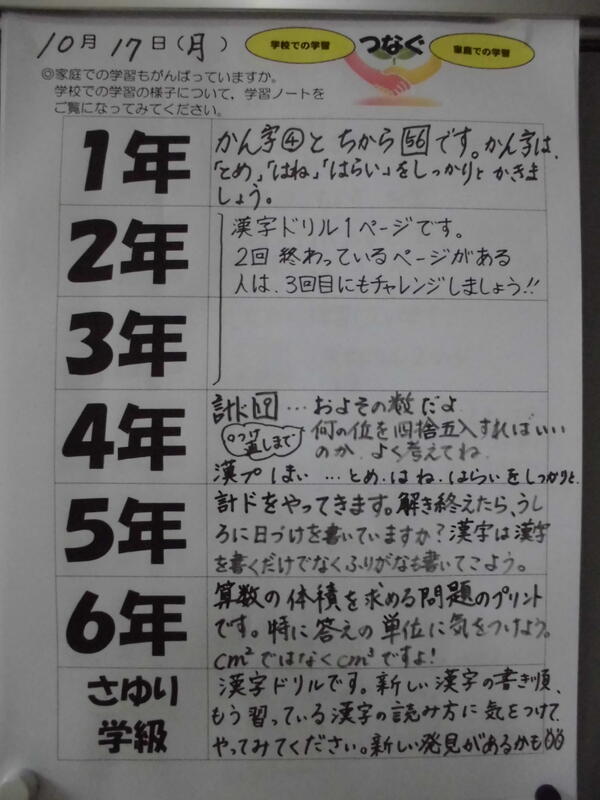 10月17日(月)
学校での学習 つなぐ 家庭での学習
◎家庭での学習もがんばっていますか。
学校での学習の様子について、学習ノートを
ご覧になってみてください。
1年
かん字④と ちから56です。かん字は、
「とめ」「はね」「はらい」をしっかりと かきま
しょう。
2年
3年
漢字ドリル1ページです。
2回 終わっているページがある
人は、3回目にもチャレンジしましょう!!
4年
計ド19…およその数だよ
○つけ
直しまで
何の位を四捨五入すればいい
のか よく考えてね
漢プ1まい…とめ.はね.はらいをしっかりと.
5年
計ドをやってきます。解き終えたら、うし
ろに日づけを書いていますか?漢字は漢字
を書くだけでなくふりがなも書いてこよう。
6年
算数の体積を求める問題のプリント
です。特に答えの単位に気をつけよう。
cm²ではなくcm³ですよ!
さゆり
学級
漢字ドリルです。新しい漢字の書き順、
もう習っている漢字の読み方に気をつけて、
やってみてください。新しい発見があるかも